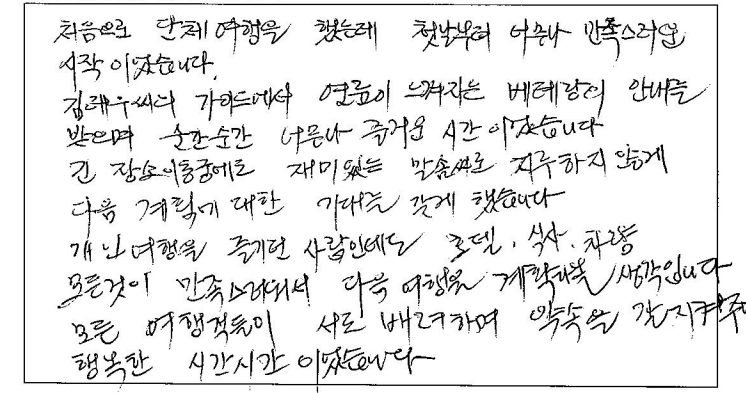 처음으로 단체여행을 했는데 첫날부터 너무나 만족스러운
시작이었습니다.
김래우씨의 가이드에서 연륜이 느껴지는 베테랑의 안내를
받으며 순간순간 너무나 즐거운 시간이었습니다
긴 장소이동중에도 재미있는 말솜씨로 지루하지 않게
다음 계획에 대한 기대를 갖게 했습니다
개인여행을 즐기던 사람인데도 호텔, 식사, 차량
모든것이 만족스러워서 다음 여행을 계획해볼 생각입니다
모든 여행객들이 서로 배려하며 약속을 잘 지켜주
행복한 시간시간이었습니다